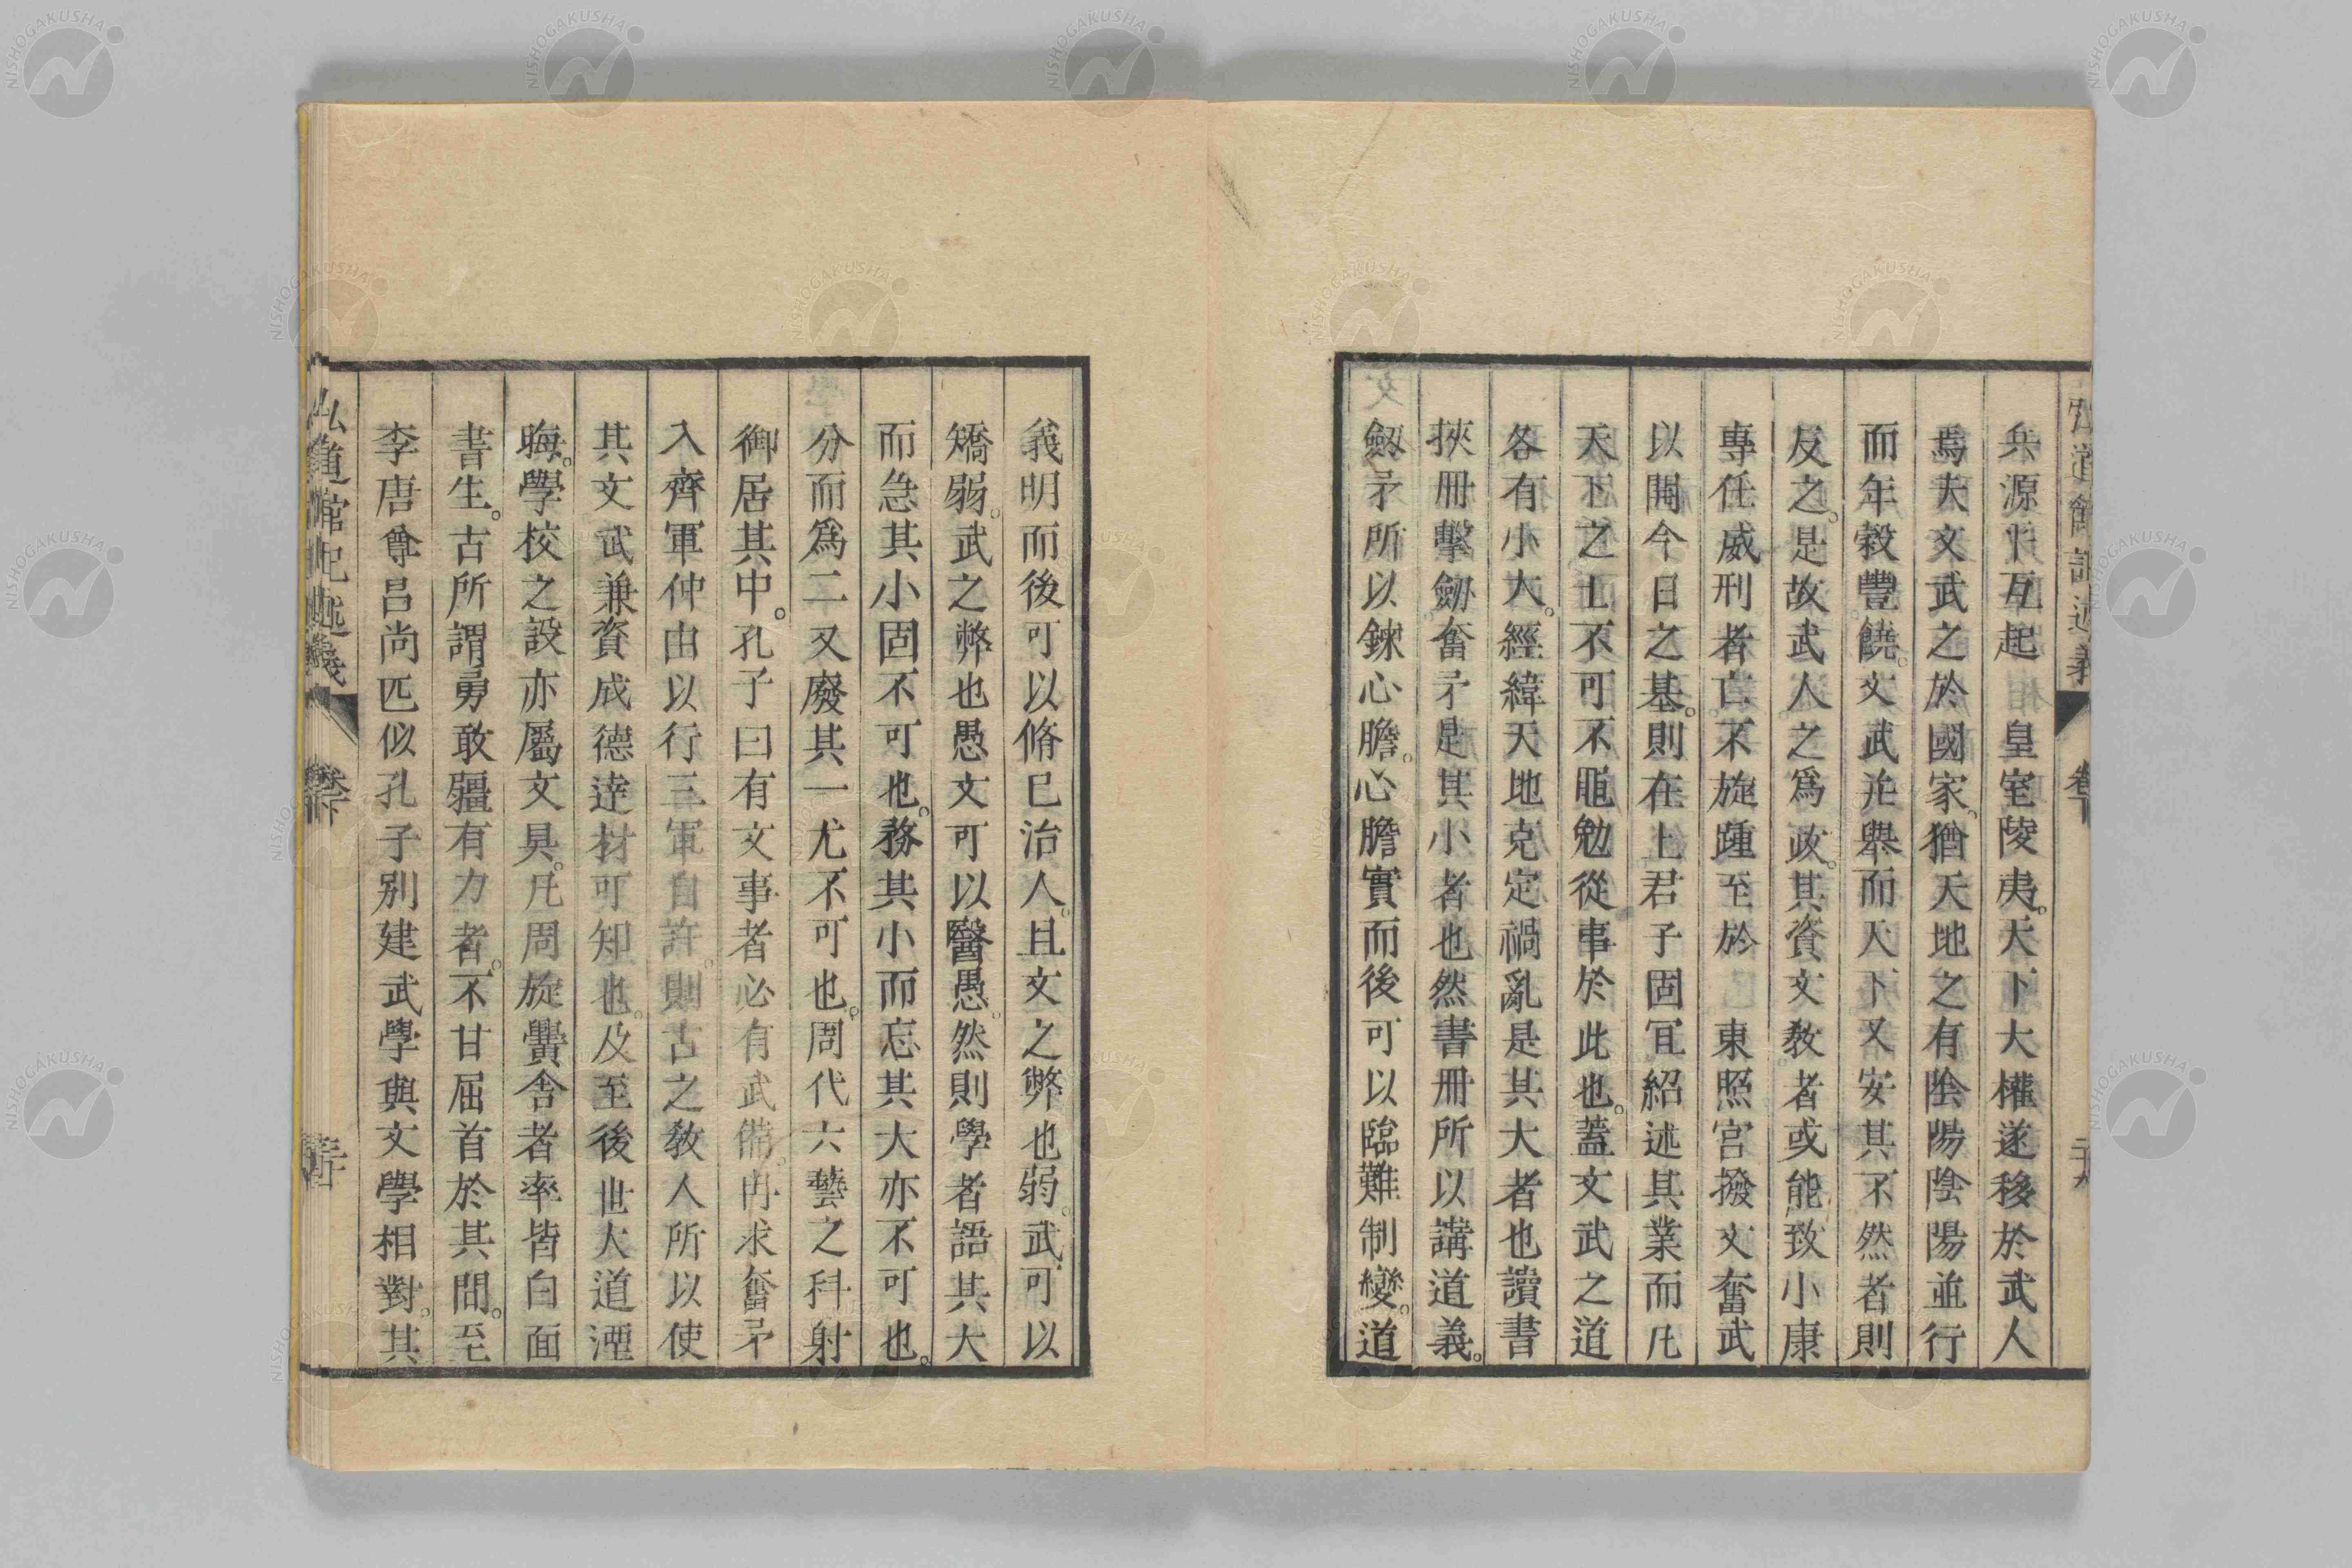 弘道館記述義 卷下 二十九
兵源平互起 皇室陵夷。天下大權遂移於武人
焉夫文武之於國家。猶天地之有陰陽陰陽並行
而年穀豐饒。文武並擧而天下又安其不然者則
反之。是故武人之爲政。其資文敎者或能致小康
專任威刑者亡不旋踵至於 東照宮撥文奮武
以開今日之基。則在上君子固宜紹述其業而凡
天下之士不可不黽勉從事於此也。蓋文武之道
各有小大。經緯天地克定禍亂是其大者也讀書
挾冊擊劒奮矛是其小者也然書冊所以講道義。
劒矛所以鍊心膽。心膽實而後可以臨難制變。道
義明而後可以脩已治人。且文之弊也弱。武可以
矯弱。武之弊也愚文可以醫愚。然則學者語其大
而怠其小固不可也。務其小而忘其大亦不可也。
分而爲二又廢其一尤不可也。周代六藝之科射
御居其中。孔子曰有文事者必有武備。冉求奮矛
入齊軍仲由以行三軍自許。則古之敎人所以使
其文武兼資成德達材可知也。及至後世大道湮
晦。學校之設亦屬文具。凡周旋黌舍者率皆白面
書生。古所謂勇敢疆有力者。不甘屈首於其間。至
李唐尊呂尚匹似孔子別建武學與文學相對。其
弘道館記述義 卷下 三十
NISHOGAKUSHA